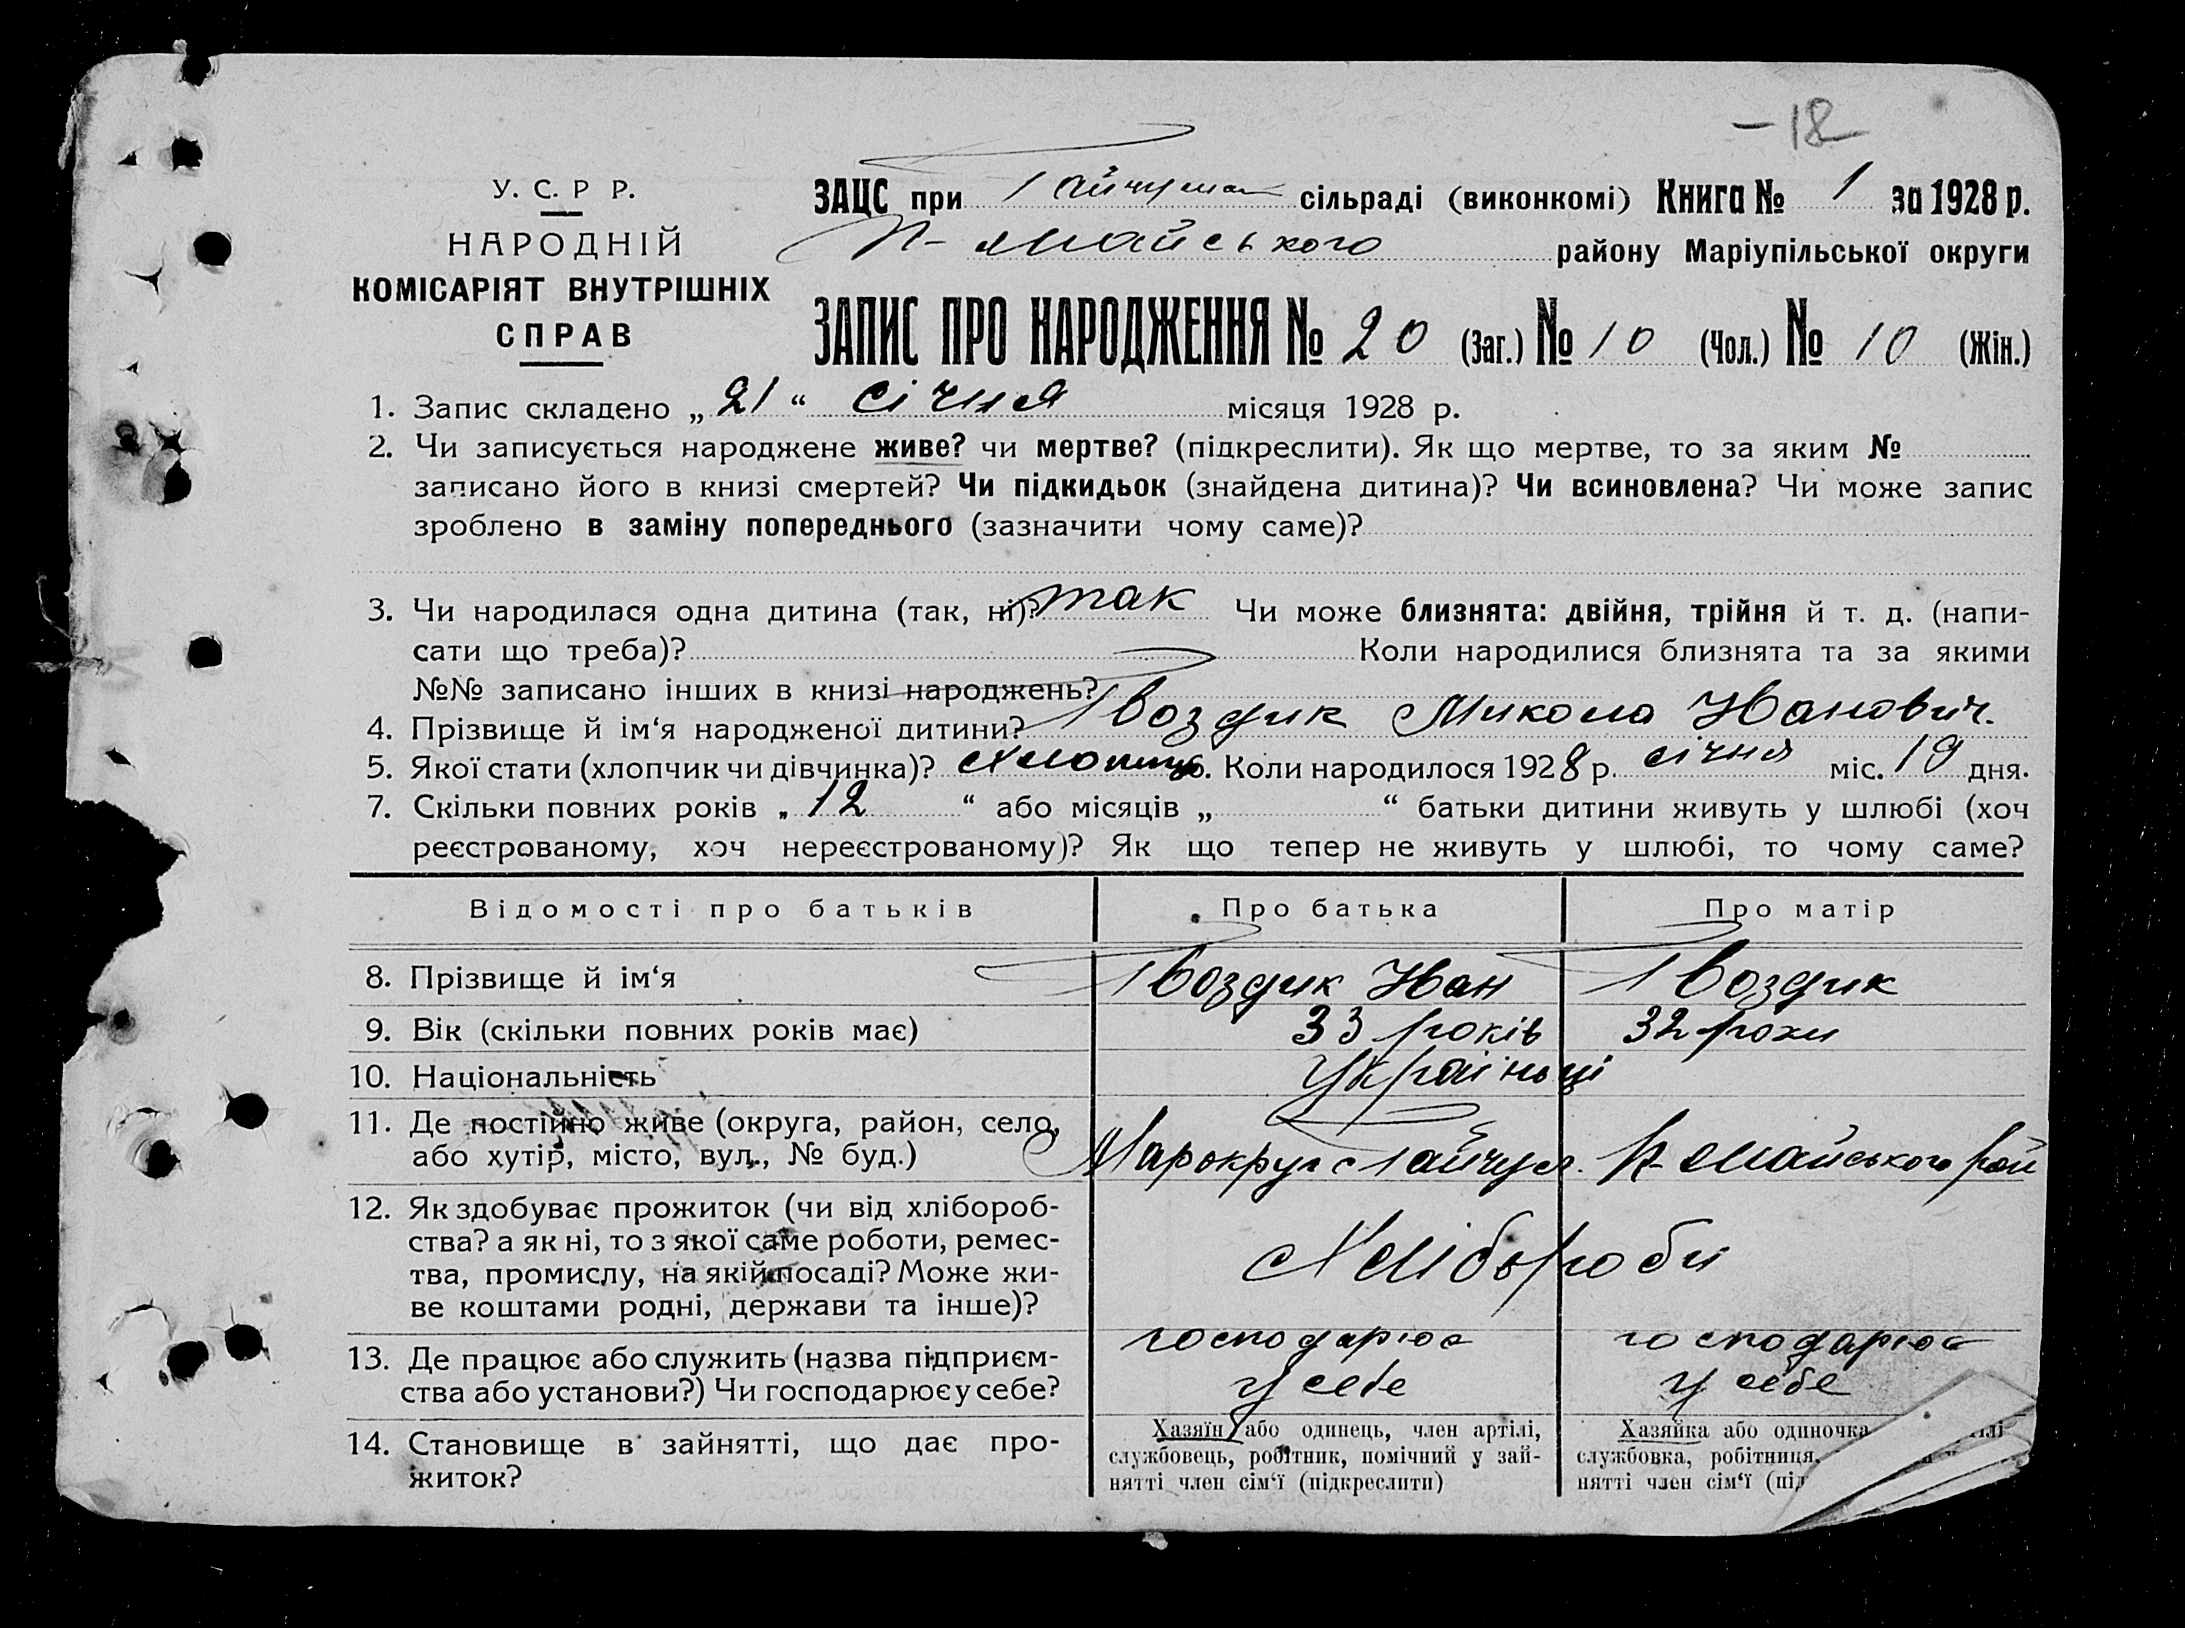 -18
У. С. Р Р.
НАРОДНІЙ
КОМІСАРІЯТ ВНУТРІШНІХ
СПРАВ
ЗАЦС при Гайчулск сільраді (виконкомі) Книга № 1 за 1928 р.
П-Майського району Маріупільської округи
ЗАПИС ПРО НАРОДЖЕННЯ № 20 (Заг.) № 10 (Чол.) № 10 (Жін.)
1. Запис складено „21“ січня місяця 1928 р.
2. Чи записується народжене живе? чи мертве? (підкреслити). Як що мертве, то за яким №
записано його в книзі смертей? Чи підкидьок (знайдена дитина)? Чи всиновлена? Чи може запис
зроблено в заміну попереднього (зазначити чому саме)?
3. Чи народилася одна дитина (так, ні)? так Чи може близнята: двійня, трійня й т. д. (напи-
сати що треба)? Коли народилися близнята та за якими
№№ записано інших в книзі народжень?
4. Прізвище й ім‘я народженої дитини? Гвоздик Микола Иванович.
5. Якої стати (хлопчик чи дівчинка)? хлопець 6. Коли народилося 1928 р. січня міс. 19 дня.
7. Скільки повних років „12“ або місяців „ “ батьки дитини живуть у шлюбі (хоч
реєстрованому, хоч нереєстрованому)? Як що тепер не живуть у шлюбі, то чому саме?
Відомості про батьків Про батька Про матір
8. Прізвище й ім‘я Гвоздик Иван Гвоздик
9. Вік (скільки повних років має) 33 років 32 роки
10. Національність Українці
11. Де постійно живе (округа, район, село,
або хутір, місто, вул., № буд.) Марокруг с Гайчул. П-Майського рай
12. Як здобуває прожиток (чи від хлібороб-
ства? а як ні, то з якої саме роботи, ремес-
тва, промислу, на якій посаді? Може жи-
ве коштами родні, держави та інше)?
Хлібороби
13. Де працює або служить (назва підприєм-
ства або установи?) Чи господарює у себе?
господарює господарює
у себе у себе
14. Становище в зайнятті, що дає про-
житок?
Хазяїн або одинець, член артілі,
службовець, робітник, помічний у зай-
нятті член сім‘ї (підкреслити)
Хазяйка або одиночка
службовка, робітниця,
нятті член сім‘ї